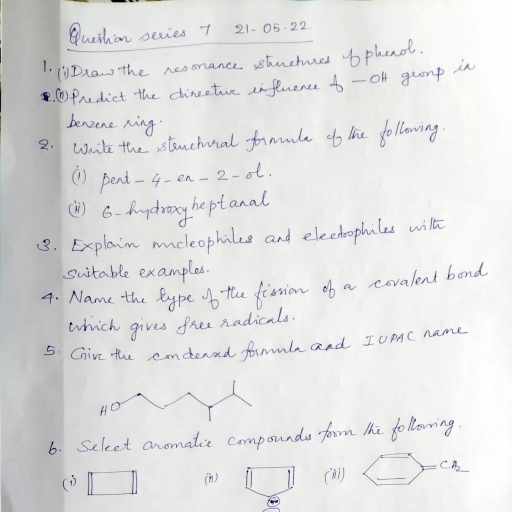 Question series 7 21-05-22.
1. (i) Draw the resonance structures of phenol.
(ii) Predict the directive influence of -OH group in
benzene ring.
2. Write the structural formula of the following.
(i) pent-4-en-2-ol.
(ii) 6-hydroxyheptanal
3. Explain nucleophiles and electrophiles with
suitable examples.
4. Name the type of the fission of a covalent bond
which gives free radicals.
5. Give the condensed formula and IUPAC name
HO
6. Select aromatic compounds from the following.
(i) (ii) (iii) =CH2